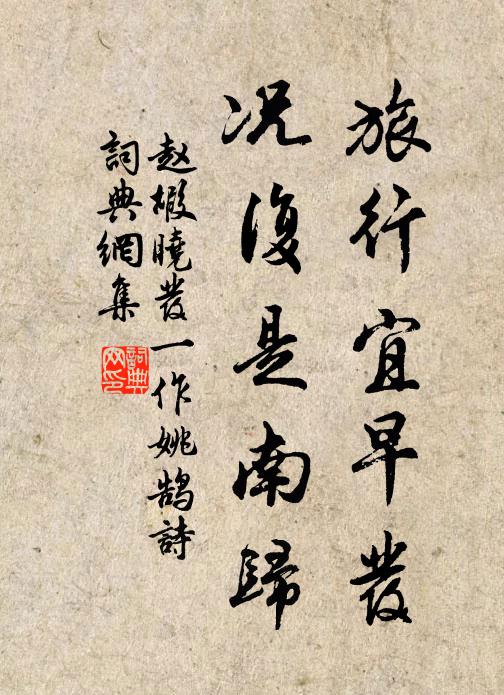 旅行宜早發
况復是南歸
赵嘏曉發一作姚鵠詩
詞典網集
詞典網印